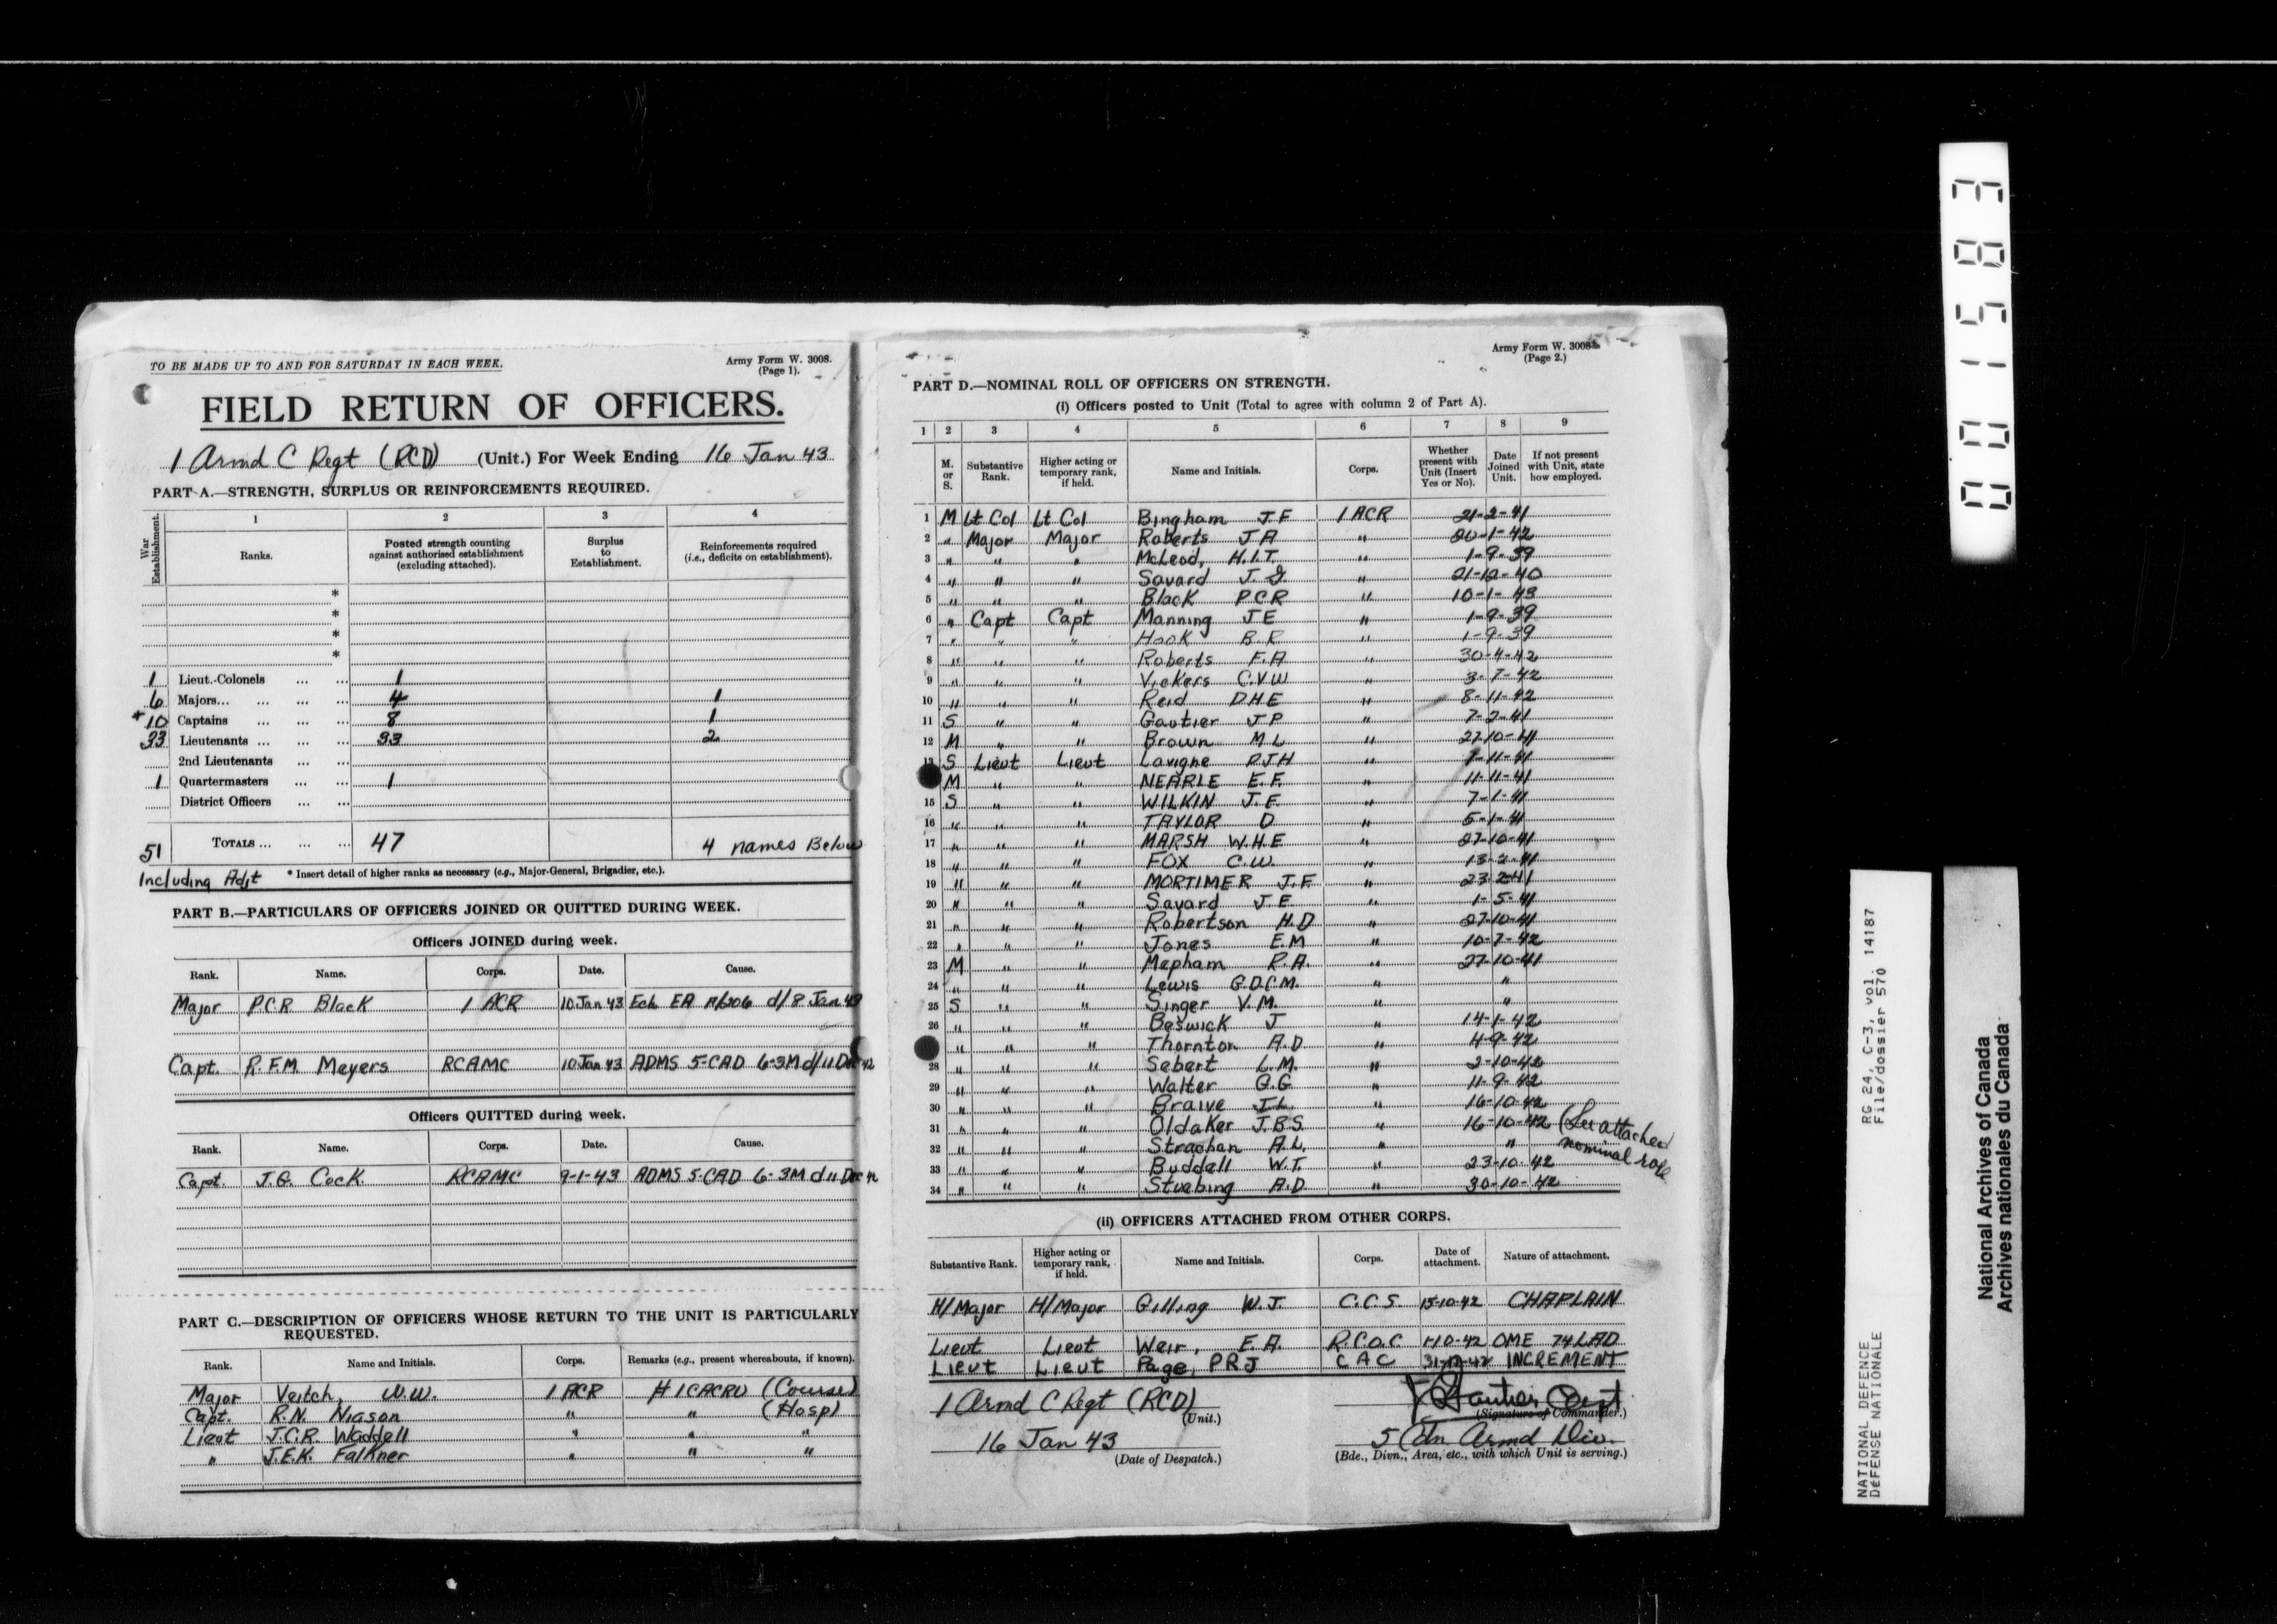 TO BE MADE UP TO AND FOR SATURDAY IN EACH WEEK.
Army Form W. 3008.
(Page 1).
FIELD RETURN OF OFFICERS.
1 Armd C Regt (RCD) (Unit.) For Week Ending 16 Jan 43
PART A.—STRENGTH, SURPLUS OR REINFORCEMENTS REQUIRED.
War Establishment.
1 2 3 4
Ranks. Posted strength counting against authorised establishment (excluding attached). Surplus to Establishment. Reinforcements required (i.e., deficits on establishment).
*
*
*
*
1 Lieut.-Colonels ... ... 1
6 Majors... ... ... ... 4 1
*10 Captains ... ... ... 8 1
33 Lieutenants ... ... ... 33 2
2nd Lieutenants ... ...
1 Quartermasters ... ... 1
District Officers ... ...
51 TOTALS ... ... ... 47 4 names Below
Including Adjt * Insert detail of higher ranks as necessary (e.g., Major-General, Brigadier, etc.).
PART B.—PARTICULARS OF OFFICERS JOINED OR QUITTED DURING WEEK.
Officers JOINED during week.
Rank. Name. Corps. Date. Cause.
Major P.C.R. Black 1 ACR 10 Jan 43 Ech EA d/8 Jan 43
Capt. R.F.M. Meyers RCAMC 10 Jan 43 ADMS 5-CAD 6-3M d/11 Dec 42
Officers QUITTED during week.
Rank. Name. Corps. Date. Cause.
Capt. J.G. Cock RCAMC 9-1-43 ADMS 5-CAD 6-3M d 11 Dec 42
PART C.—DESCRIPTION OF OFFICERS WHOSE RETURN TO THE UNIT IS PARTICULARLY
REQUESTED.
Rank. Name and Initials. Corps. Remarks (e.g., present whereabouts, if known).
Major Veitch, W.W. 1 ACR # 1 CACRU (Course)
Capt. R.N. Niason " " (Hosp)
Lieut J.C.R. Waddell " " "
" J.E.K. Falkner " " "
Army Form W. 3008
(Page 2.)
PART D.—NOMINAL ROLL OF OFFICERS ON STRENGTH.
(i) Officers posted to Unit (Total to agree with column 2 of Part A).
1 2 3 4 5 6 7 8 9
M. or S. Substantive Rank. Higher acting or temporary rank, if held. Name and Initials. Corps. Whether present with Unit (Insert Yes or No). Date Joined Unit. If not present with Unit, state how employed.
1 M Lt Col Lt Col Bingham J.F 1 ACR 21-2-41
2 " Major Major Roberts J A " 20-1-42
3 " " " McLeod, H.I.T. " 1-9-39
4 " " " Savard J. G. " 21-12-40
5 " " " Black P C R " 10-1-43
6 " Capt Capt Manning J E " 1-9-39
7 " " " Hook B.F. " 1-9-39
8 " " " Roberts F.A " 30-4-42
9 " " " Vickers C.V.W " 3-7-42
10 " " " Reid D.H.E " 8-11-42
11 S " " Gautier J P " 7-2-41
12 M " " Brown M L " 27-10-41
13 S Lieut Lieut Lavigne RJH " 1-11-41
M " " NEARLE E.F. " 11-11-41
15 S " " WILKIN J.E. " 7-1-41
16 " " " TAYLOR D " 5-1-41
17 " " " MARSH W.H.E " 27-10-41
18 " " " FOX C.W. " 13-2-41
19 " " " MORTIMER J.F. " 23-2-41
20 " " " Savard J.E. " 1-5-41
21 " " " Robertson H.D " 27-10-41
22 " " " Jones E.M " 10-7-42
23 M " " Mepham R.A. " 27-10-41
24 " " " Lewis G.D.C.M. " "
25 S " " Singer V.M. " "
26 " " " Beswick J " 14-1-42
" " " Thornton A.D. " 4-9-42
28 " " " Sebert L.M. " 2-10-42
29 " " " Walter G.G. " 11-9-42
30 " " " Braive J.L. " 16-10-42
31 " " " Oldaker J.B.S. " 16-10-42 (See attached
32 " " " Strachan A.L. " " nominal role
33 " " " Buddell W.T. " 23-10-42
34 " " " Stuebing A.D. " 30-10-42
(ii) OFFICERS ATTACHED FROM OTHER CORPS.
Substantive Rank. Higher acting or temporary rank, if held. Name and Initials. Corps. Date of attachment. Nature of attachment.
H/Major H/Major Gilling W.J. C.C.S. 15-10-42 CHAPLAIN
Lieut Lieut Weir, E.A. R.C.O.C 1-10-42 OME 74 LAD
Lieut Lieut Page, PRJ CAC INCREMENT
1 Armd C Regt (RCD)
(Unit.)
Gautier Capt
(Signature of Commander.)
16 Jan 43
(Date of Despatch.)
5 Cdn Armd Div.
(Bde., Divn., Area, etc., with which Unit is serving.)
001583
RG 24, C-3, vol. 14187
File/dossier 570
NATIONAL DEFENCE
DÉFENSE NATIONALE
National Archives of Canada
Archives nationales du Canada